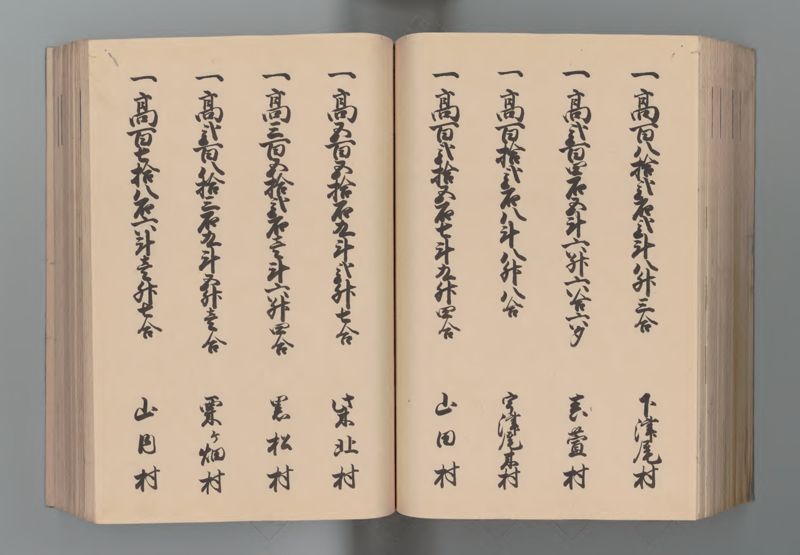 一 高百八拾弐石弐斗八升三合 下津尾村
一 高弐百四石五斗六升六合六夕 真萱村
一 高百拾弐石八斗八升八合 宮津尾木村
一 高百弐拾五石七斗九升四合 山田村
一 高五百五拾石五斗弐升七合 柴北村
一 高三百五拾弐石壱斗六升四合 黒松村
一 高弐百八拾三石五斗五升壱合 栗ヶ畑村
一 高百七拾八石六斗壱升七合 山内村